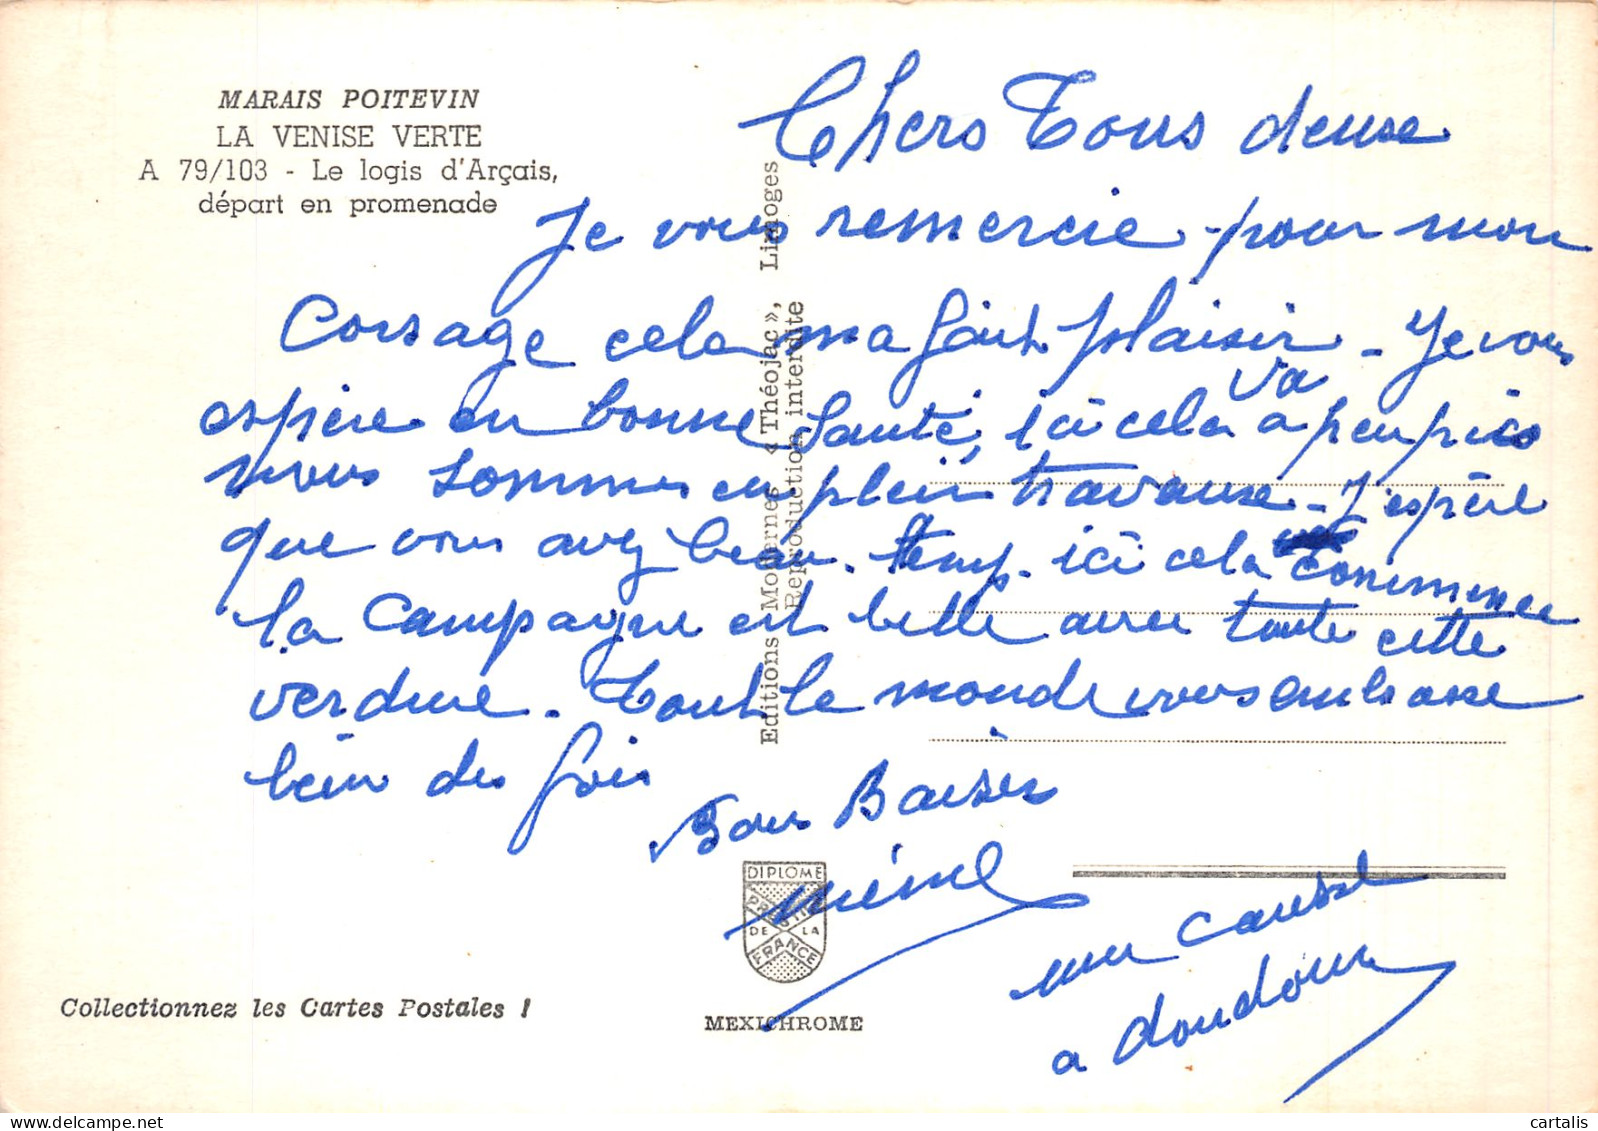 MARAIS POITEVIN
LA VENISE VERTE
A 79/103 - Le logis d'Arçais,
départ en promenade
Chers Tous deuse
Je vous remercie pour mon
Corsage cela ma fait plaisir - Je vous
espère en bonne Santé, ici cela va a peu près
nous sommes en plein travause - J'espère
que vous avez beau temp. ici cela commence
la campagne est belle avec toute cette
verdure. Tout le monde vous embrasse
bien des fois
Bon Baiser
mémé
une caresse
a doudoune
Editions Modernes « Théojac », Limoges
Reproduction interdite
DIPLOME
PRESTIGE
DE LA
FRANCE
Collectionnez les Cartes Postales !
MEXICHROME
cartalis